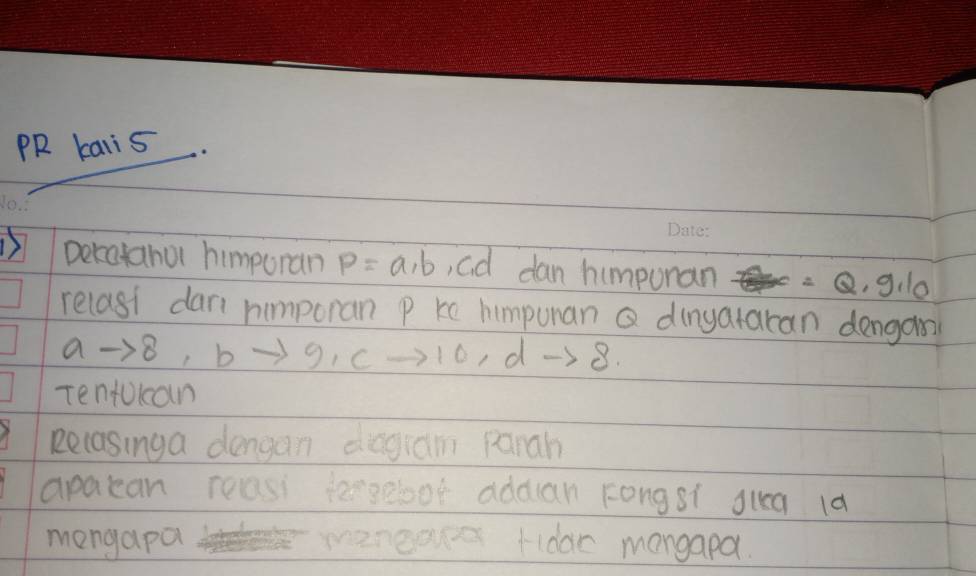 PR kali 5
No.:
Date:
1) Dekatahui himpunan P = a,b,c,d dan himpunan = Q, 9,10
relasi dari himpunan P ke himpunan Q dinyatakan dengan
a -> 8, b -> 9, c -> 10, d -> 8.
Tentukan
Relasinga dengan diagram Panah
apakah relasi tersebot adalah Fongsi jika ia
mengapa mengapa tidak mengapa.